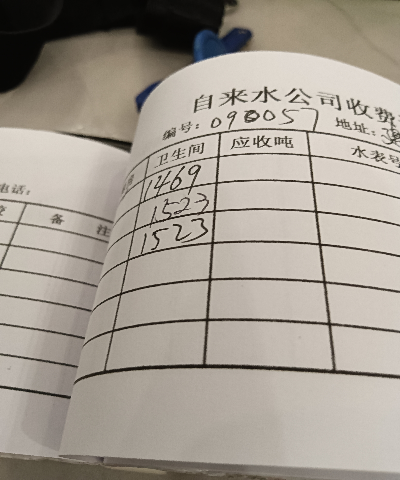 电话：
备 注
自来水公司收费
编号：090057 地址：
卫生间 应收吨 水表号
1469
1523
1523